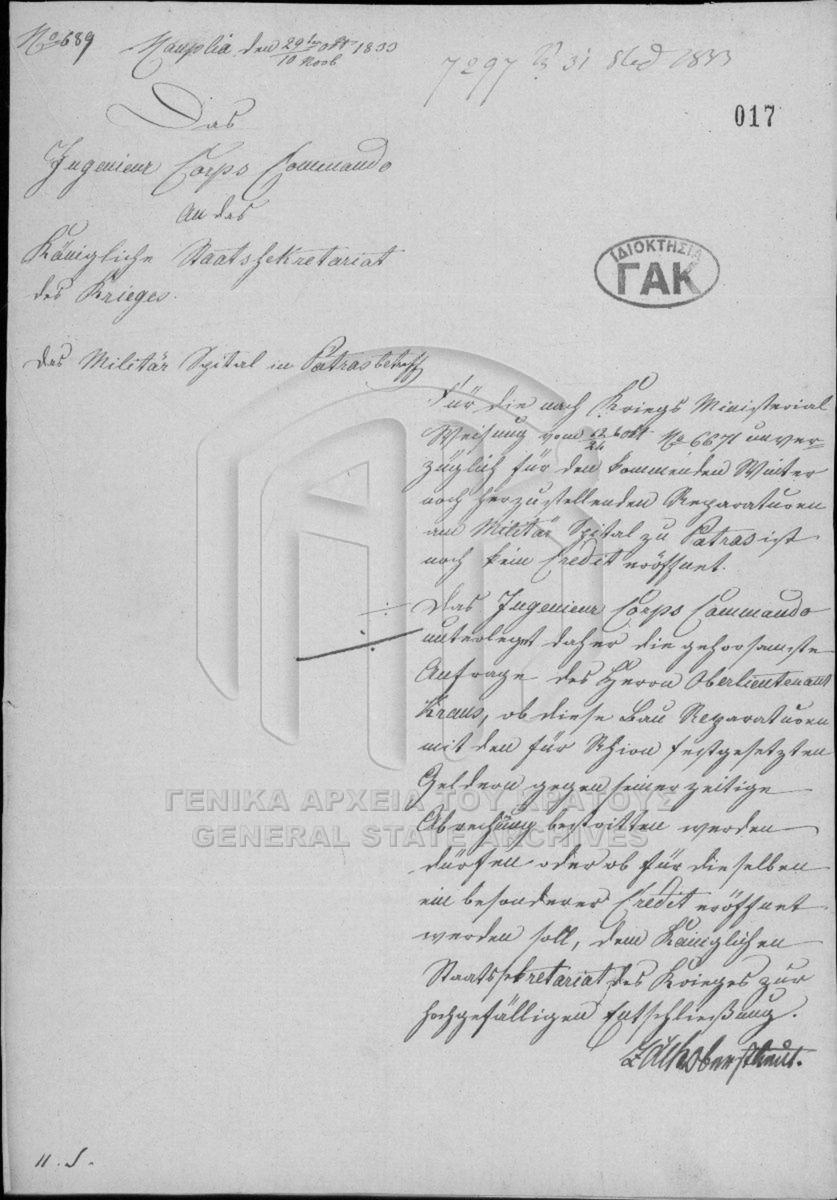 No 689
Nauplia den 29ten Okt / 10 Novb 1833
31 Okt 1833
017
Das
Ingenieur Corps Commando
an das
Königliche Staatssekretariat
des Krieges.
ΙΔΙΟΚΤΗΣΙΑ
ΓΑΚ
Das Militär Spital in Patras betreff
Für die nach Kriegs Ministerial
Weisung vom 12/24 Okt No 6671 unver=
züglich für den kommenden Winter
noch herzustellenden Reparaturen
am Militär Spital zu Patras ist
noch kein Credit eröffnet.
Das Ingenieur Corps Commando
unterlegt daher die gehorsamste
Anfrage des Herrn Oberlieutenant
Kraus, ob diese Bau Reparaturen
mit den für Rhion festgesetzten
Geldern gegen seiner zeitige
Abrechnung bestritten werden
dürfen oder ob für dieselben
ein besonderer Credit eröffnet
werden soll, dem Königlichen
Staatssekretariat des Krieges zur
hochgefälligen Entschließung.
Oberstlieut.
ΓΕΝΙΚΑ ΑΡΧΕΙΑ ΤΟΥ ΚΡΑΤΟΥΣ
GENERAL STATE ARCHIVES